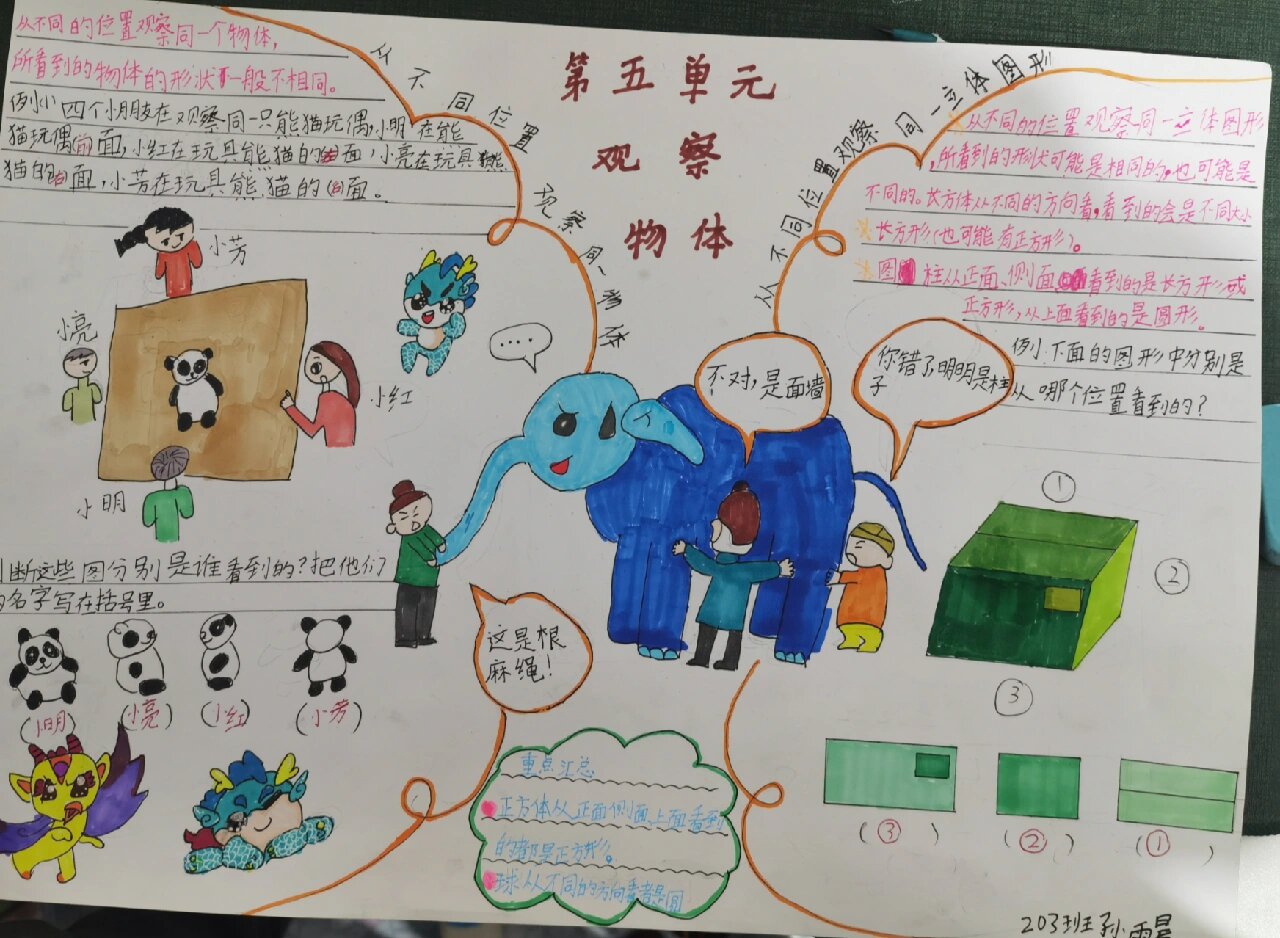 第五单元
观察
物体
从不同位置观察同一物体
从不同的位置观察同一个物体，
所看到的物体的形状一般不相同。
例小: 四个小朋友在观察同一只熊猫玩偶,小明在熊
猫玩偶前面,小红在玩具熊猫的右面,小亮在玩具熊
猫的面,小芳在玩具熊猫的面。
小芳
小亮
小红
小明
断这些图分别是谁看到的?把他们
名字写在括号里。
(小明)
(小亮)
(小红)
(小芳)
....
不对,是面墙
你错了,明明是柱
子
这是根
麻绳!
从不同位置观察同一立体图形
从不同的位置观察同一立体图形
,所看到的形状可能是相同的,也可能是
不同的。长方体从不同的方向看,看到的会是不同大小
长方形(也可能有正方形)。
图柱从正面、侧面看到的是长方形或
正方形,从上面看到的是圆形。
例小:下面的图形中分别是
从哪个位置看到的?
①
②
③
(③)
(②)
(①)
重点汇总
正方体从正面侧面上面看到
的都是正方形。
球从不同的方向看都是圆
203班孙雨